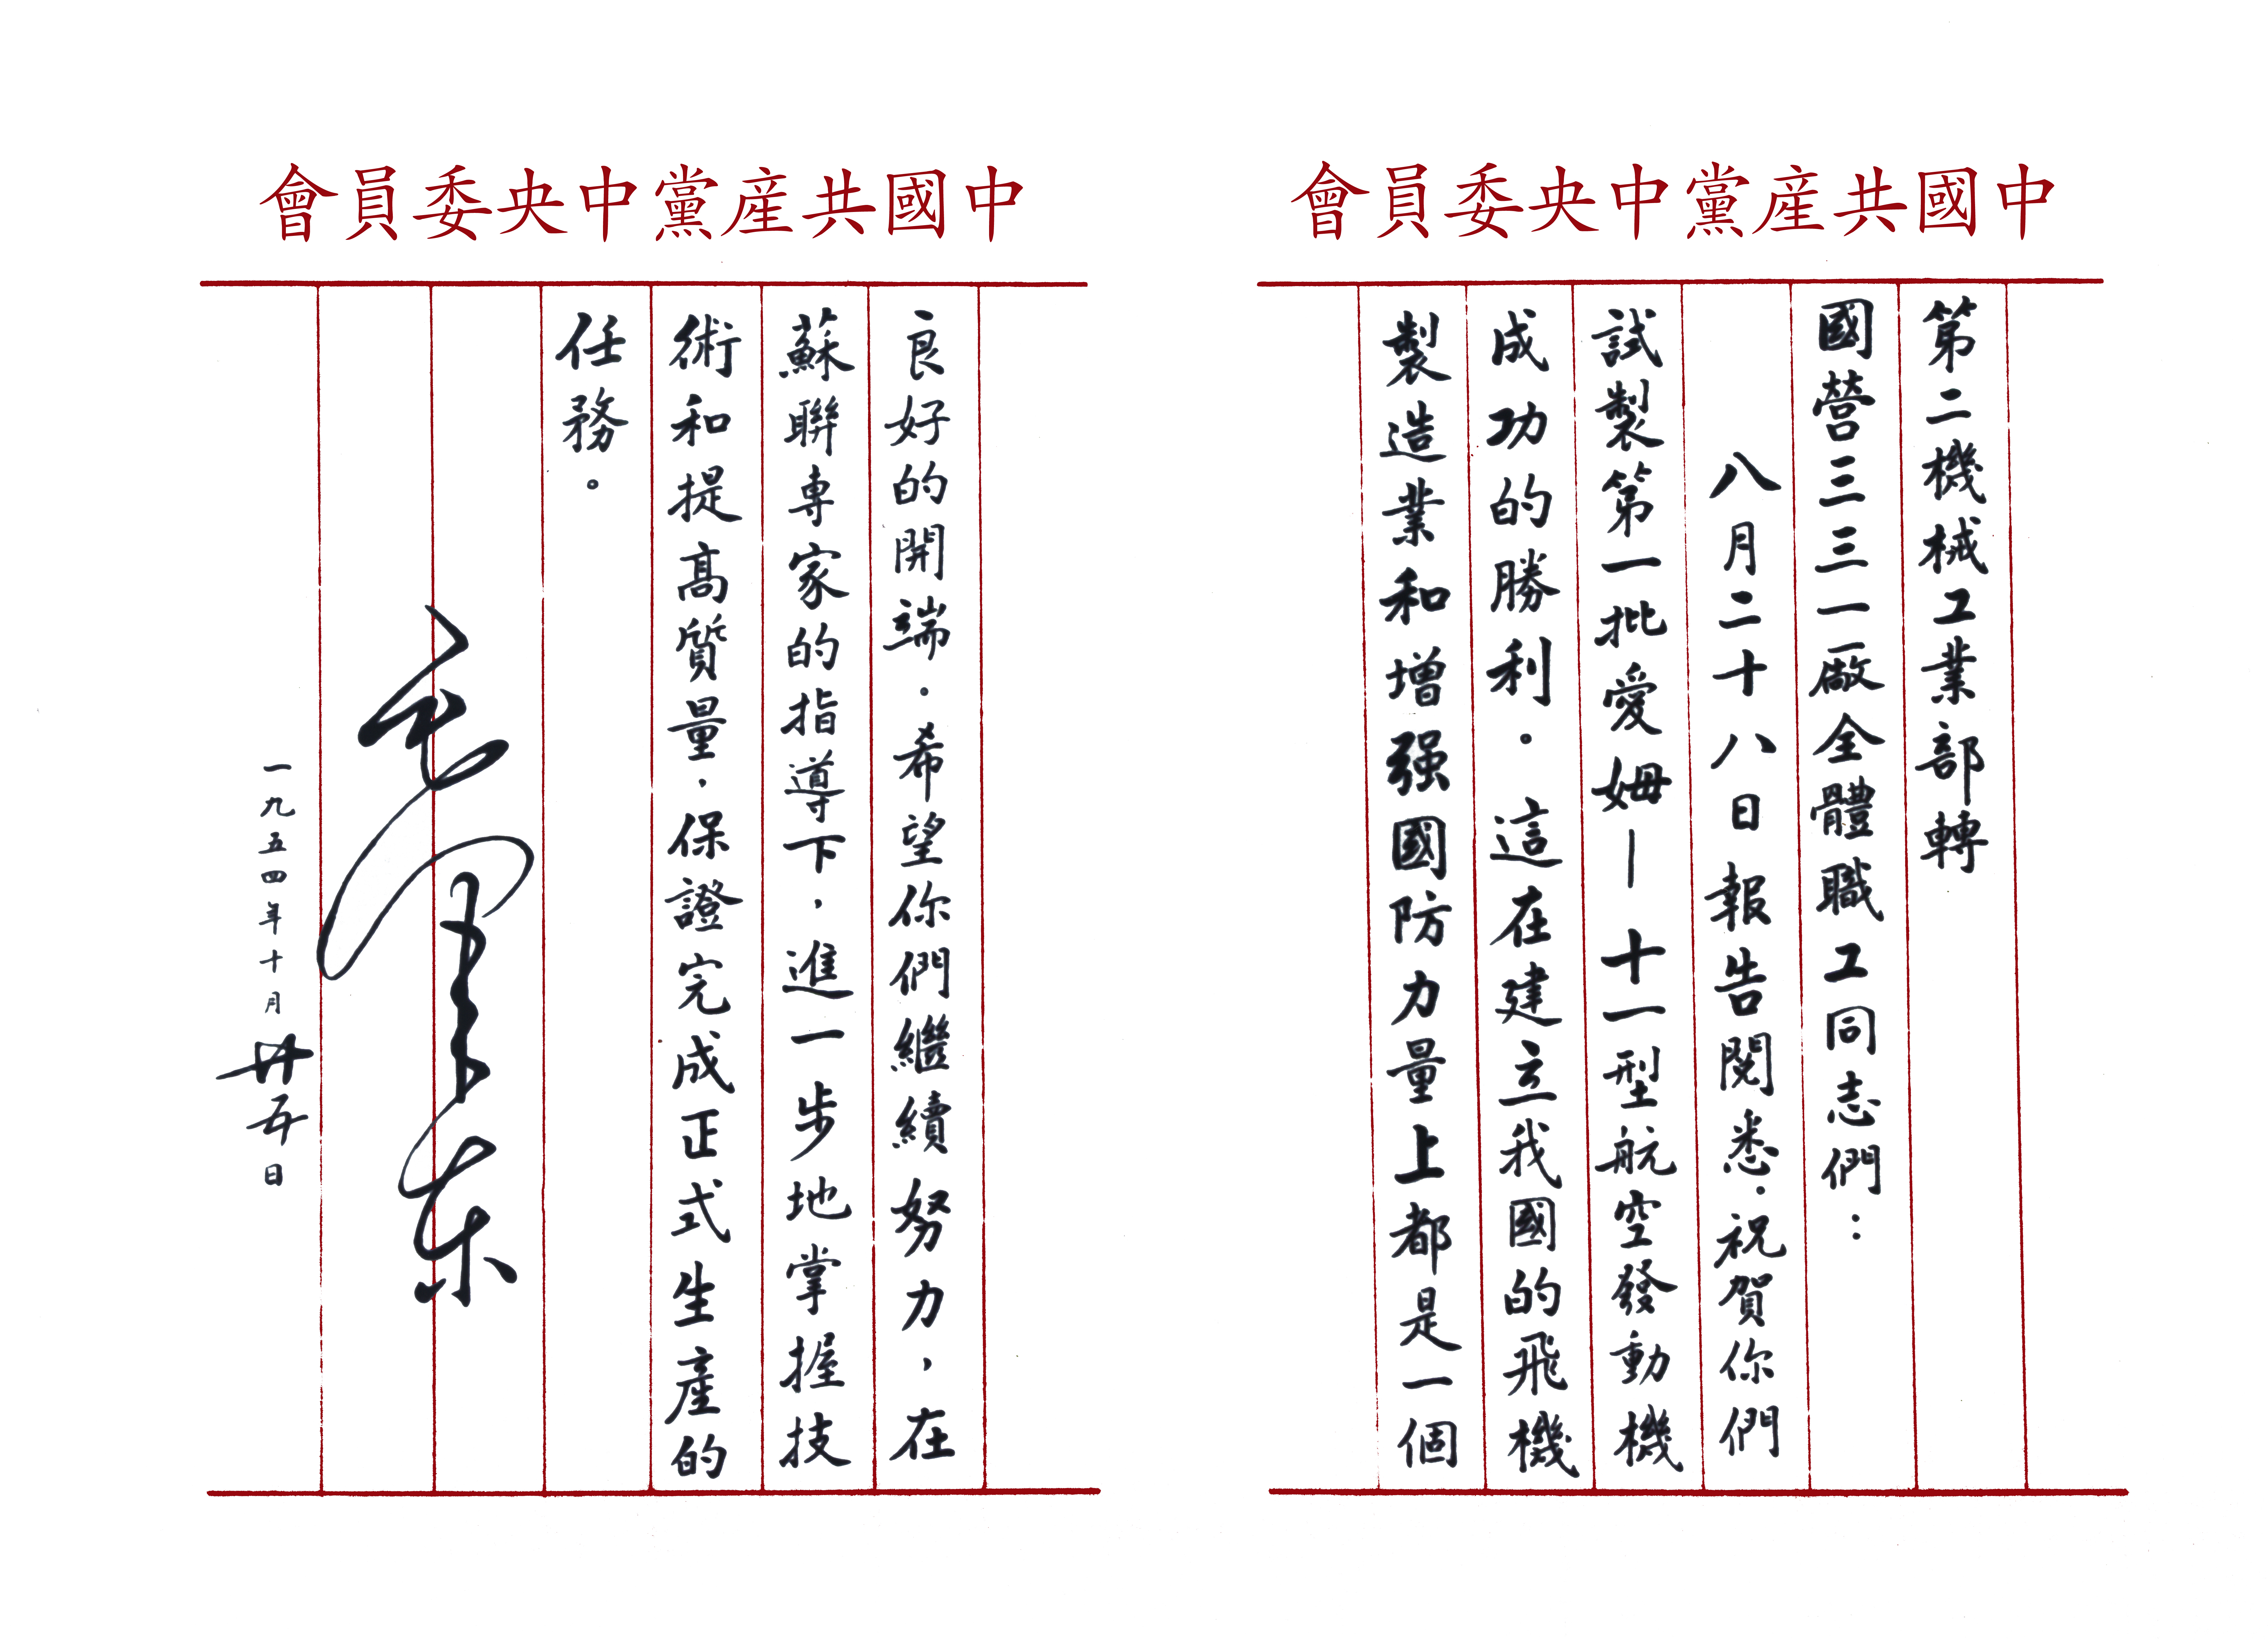 中國共產黨中央委員會
第二機械工業部轉
國營三三一廠全體職工同志們：
八月二十八日報告閱悉．祝賀你們
試製第一批愛姆—十一型航空發動機
成功的勝利．這在建立我國的飛機
製造業和增强國防力量上都是一個
中國共產黨中央委員會
良好的開端．希望你們繼續努力，在
蘇聯專家的指導下，進一步地掌握技
術和提高質量，保證完成正式生產的
任務。
毛澤東
一九五四年十月廿五日